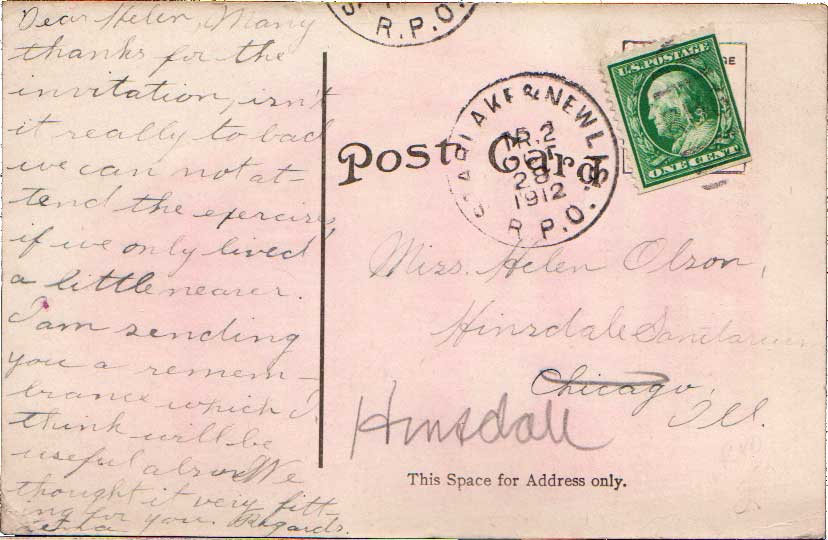 Dear Helen, Many
thanks for the
invitation, isn't
it really to bad
we can not at-
tend the exercise,
if we only lived
a little nearer.
I am sending
you a remem-
brance which I
think will be
useful also We
thought it very fitt-
ing for you. Regards.
R.P.O.
STARLAKE & NEWL
TR.2
28
1912
R.P.O.
U.S.POSTAGE
ONE CENT
Post Card
Miss. Helen Olson,
Hinsdale Sanitarium
Chicago,
Ill.
Hinsdale
This Space for Address only.